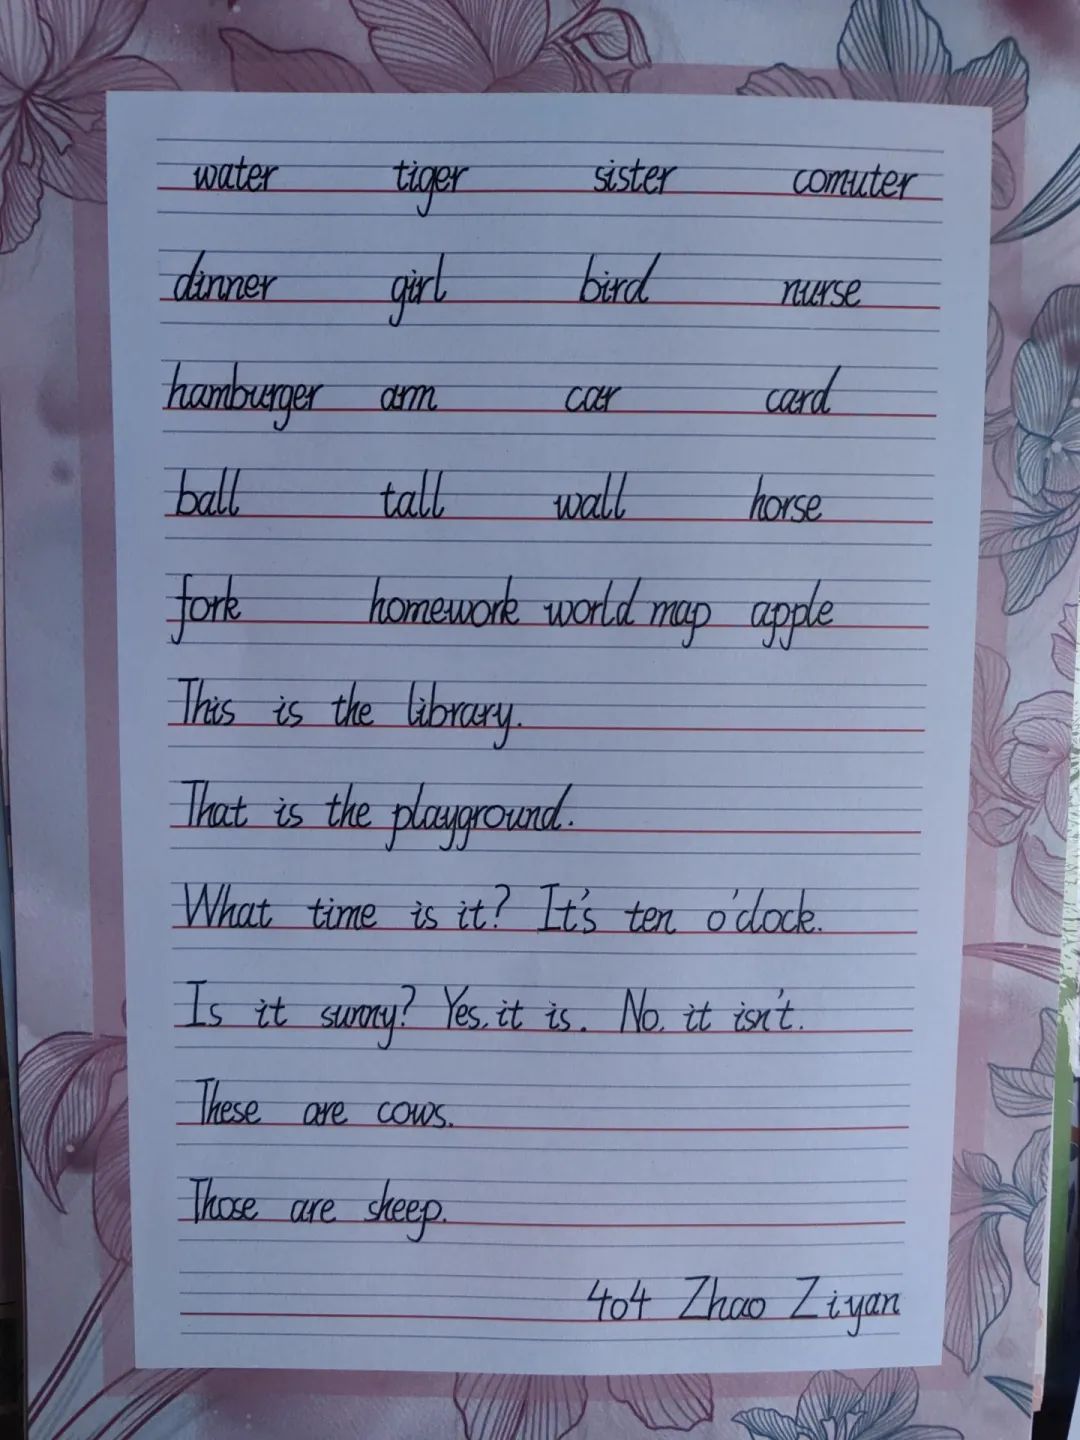 water tiger sister comuter
dinner girl bird nurse
hamburger arm car card
ball tall wall horse
fork homework world map apple
This is the library.
That is the playground.
What time is it? It's ten o'clock.
Is it sunny? Yes, it is. No, it isn't.
These are cows.
Those are sheep.
404 Zhao Ziyan